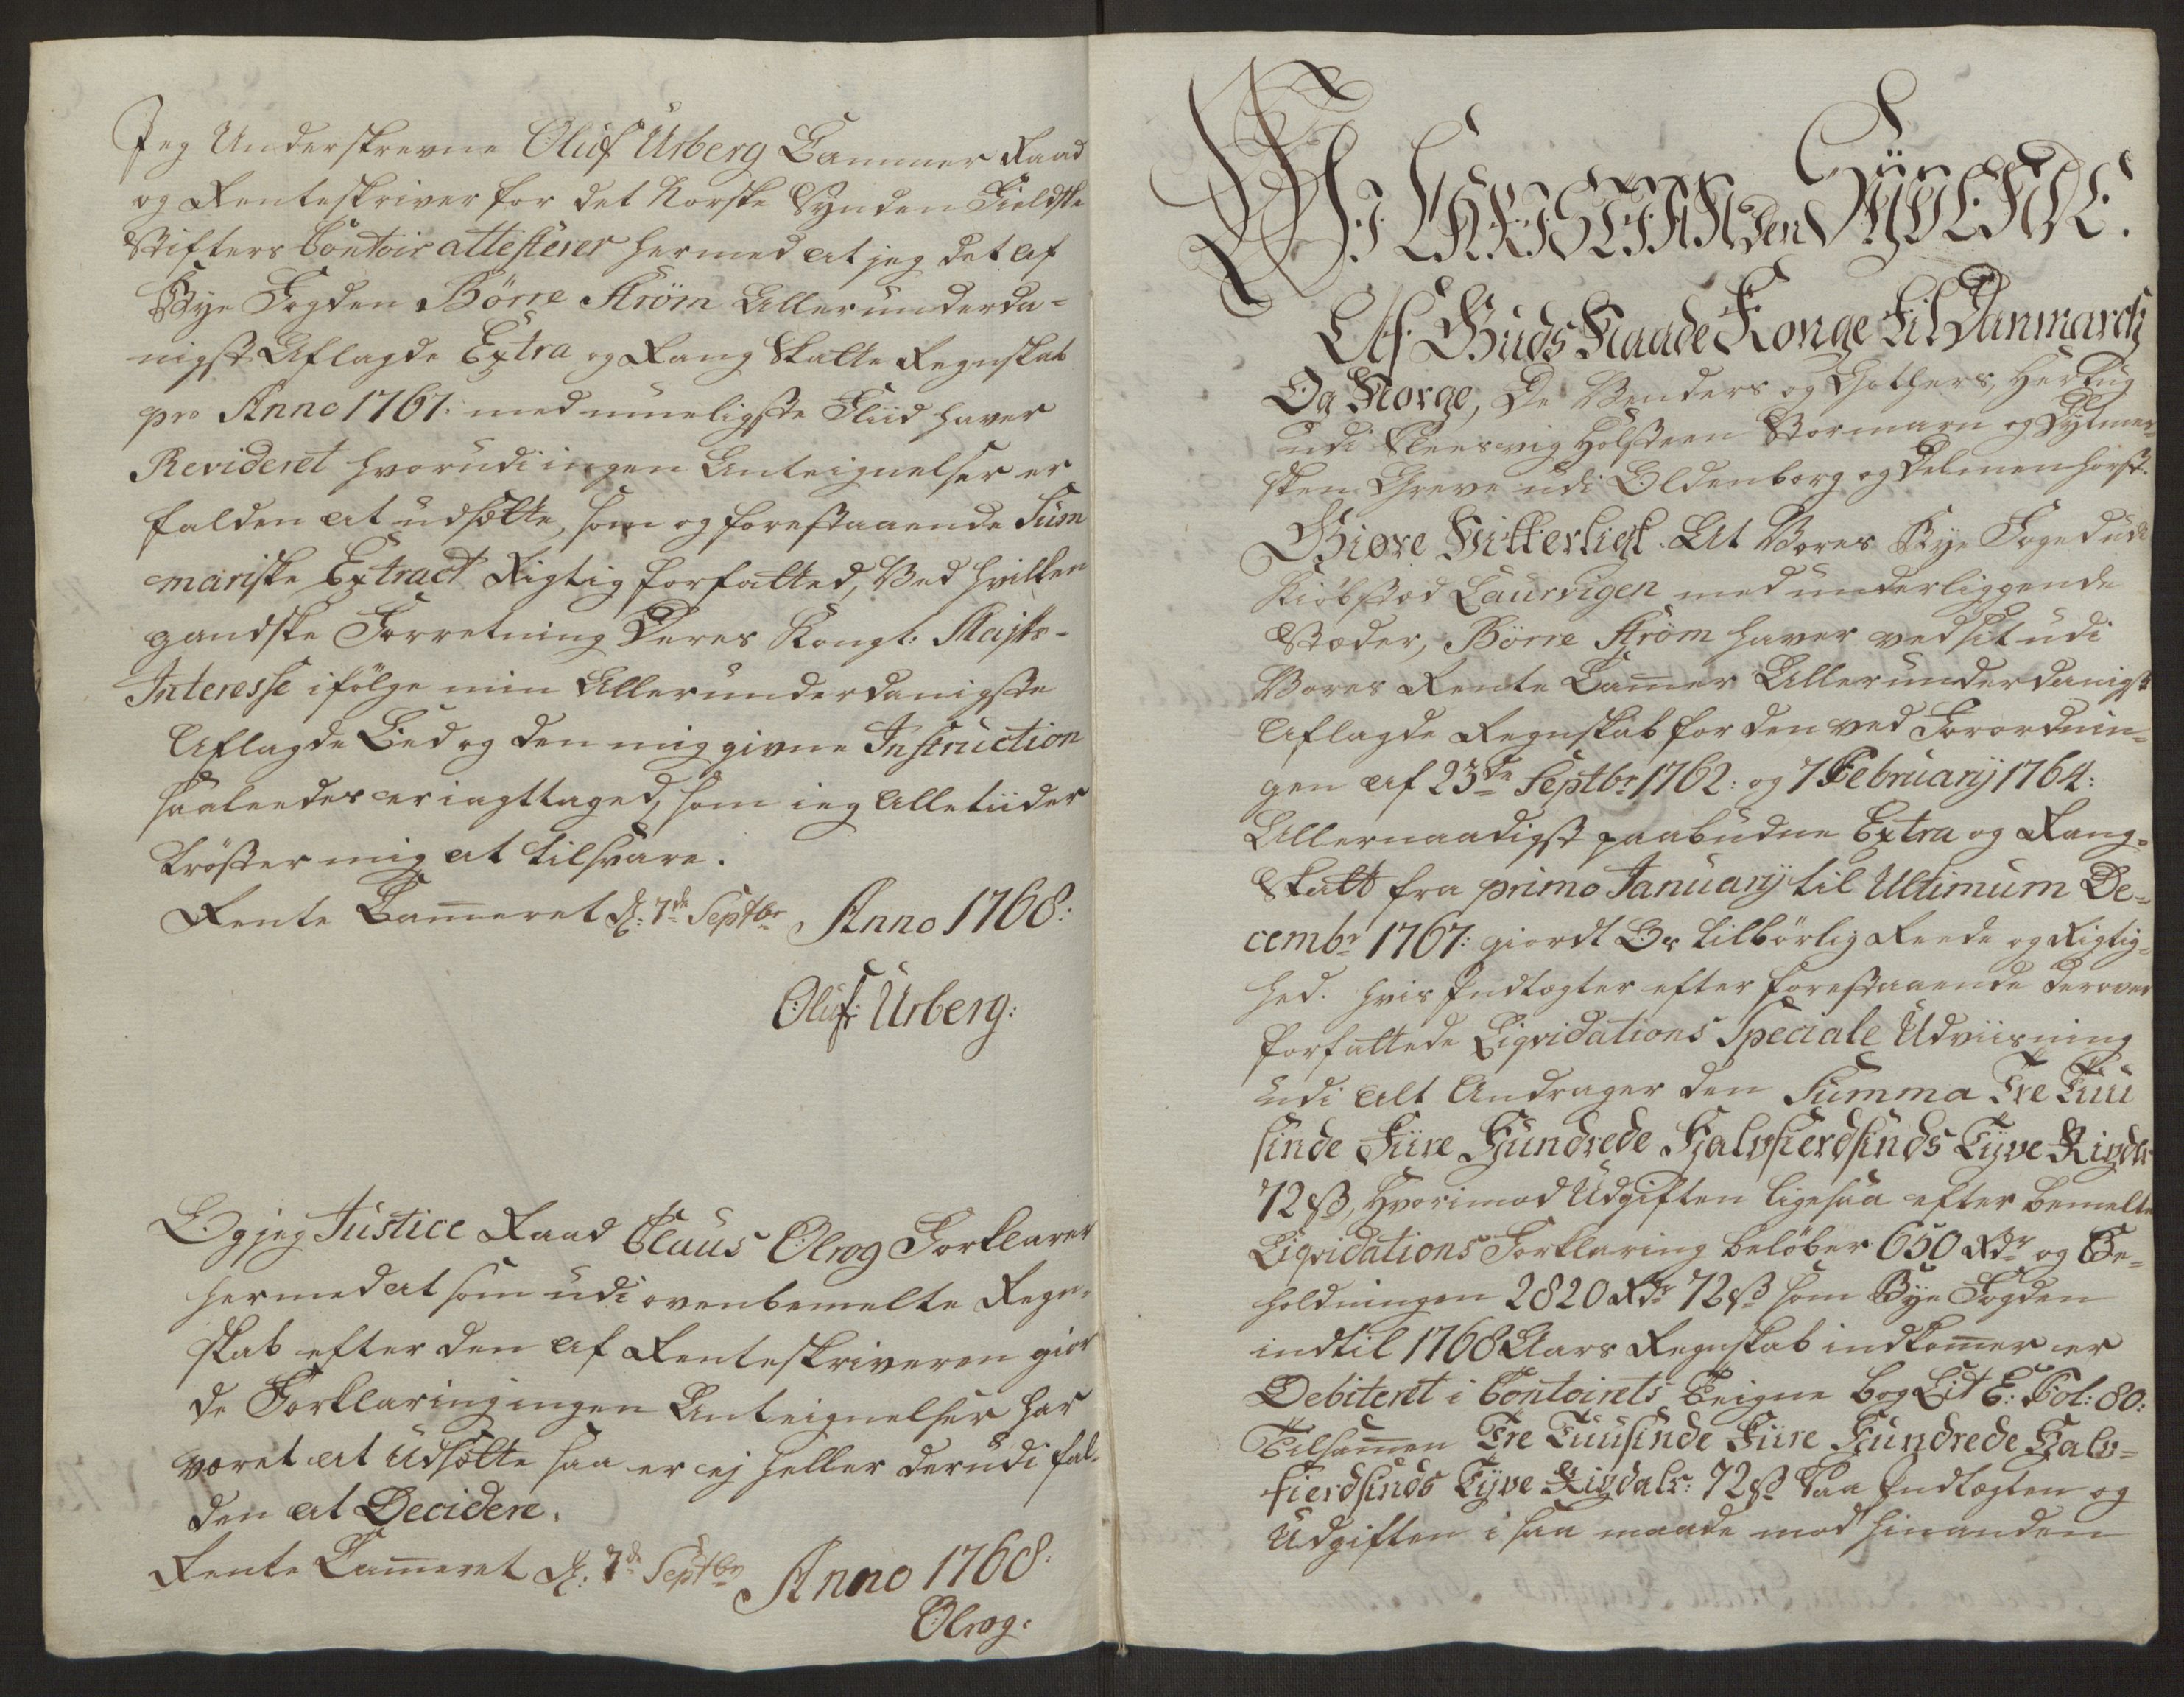 Jeg Underskrevne Oluf Urberg Cammer Raad
og Renteskriver for det Norske Synden Fieldske
Stifters Contoir attesterer hermed at jeg det af
Bye Fogden Börre Ström Allerunderda-
nigst Aflagde Extra og Rang Skatte Regnskab
pro Anno 1767: med mueligste Fliid haver
Revideret hvorudi ingen Anteignelser er
falden at udsætte, som og forestaaende Sum
mariske Extract Rigtig forfatted, Ved hvilken
gandske Forretning Deres Kongl: Majsts-
Interesse ifölge min Allerunderdanigste
Aflagde Eed og den mig givne Instruction
saaleedes er iagttaged, som ieg alletiider
tröster mig at tilsvare.
Rente Cam̅eret d: 7de Septbr Anno 1768:
Oluf Urberg:
Og jeg Justice Raad Claus Olrog Forklarer
hermed at som udi ovenbemelte Regn-
skab efter den af Renteskriveren gior
de Forklaring ingen Anteignelser har
været at udsætte saa er ej heller derudi fal-
den at Decidere.
Rente Cam̅eret d: 7de Septbr Anno 1768:
Olrog:
Vi CHRISTIAN den SYVENDE.
Af Guds Naade Konge Til Danmarch
Og Norge, De Venders og Gothers, Hertug
udi Sleesvig Holsteen Stormarn og Dytmer-
sken Greve udi Oldenborg og Delmenhorst.
Giøre Vitterligt. At Vores Bye Foged udi
Kiöbstæd Laurvigen med underliggende
Stæder, Börre Ström haver ved sit udi
Vores Rente Cam̅er Allerunderdanigst
Aflagde Regnskab for den ved Forordnin-
gen af 23de Septbr 1762: og 7 February 1764:
Allernaadigst paabudne Extra og Rang-
Skatt fra primo January til Ultimum De-
cembr 1767: giordt Os tilbörlig Reede og Rigtig-
hed. Hvis Indtægter efter forestaaende derover
forfattede Liqvidations Speciale Udviisning
udi alt Andrager den Summa Tre Tuu
sinde Fiire Hundrede Halvfierdsinds Tyve Rigdlr
72 ß, Hvorimod Udgiften ligesaa efter bemelte
Liqvidations Forklaring belöber 650 Rdr og Be-
holdningen 2820 Rdr 72 ß som Bye Fogden
indtil 1768 Aars Regnskab indkom̅er er
Debiteret i Contoirets Teigne bog Lit E: Fol: 80:
Tilsam̅en Tre Tuusinde Fiire Hundrede Halv-
fierdsinds Tyve Rigdalr: 72 ß Saa Indtægten og
Udgiften i saa maade mod hinanden